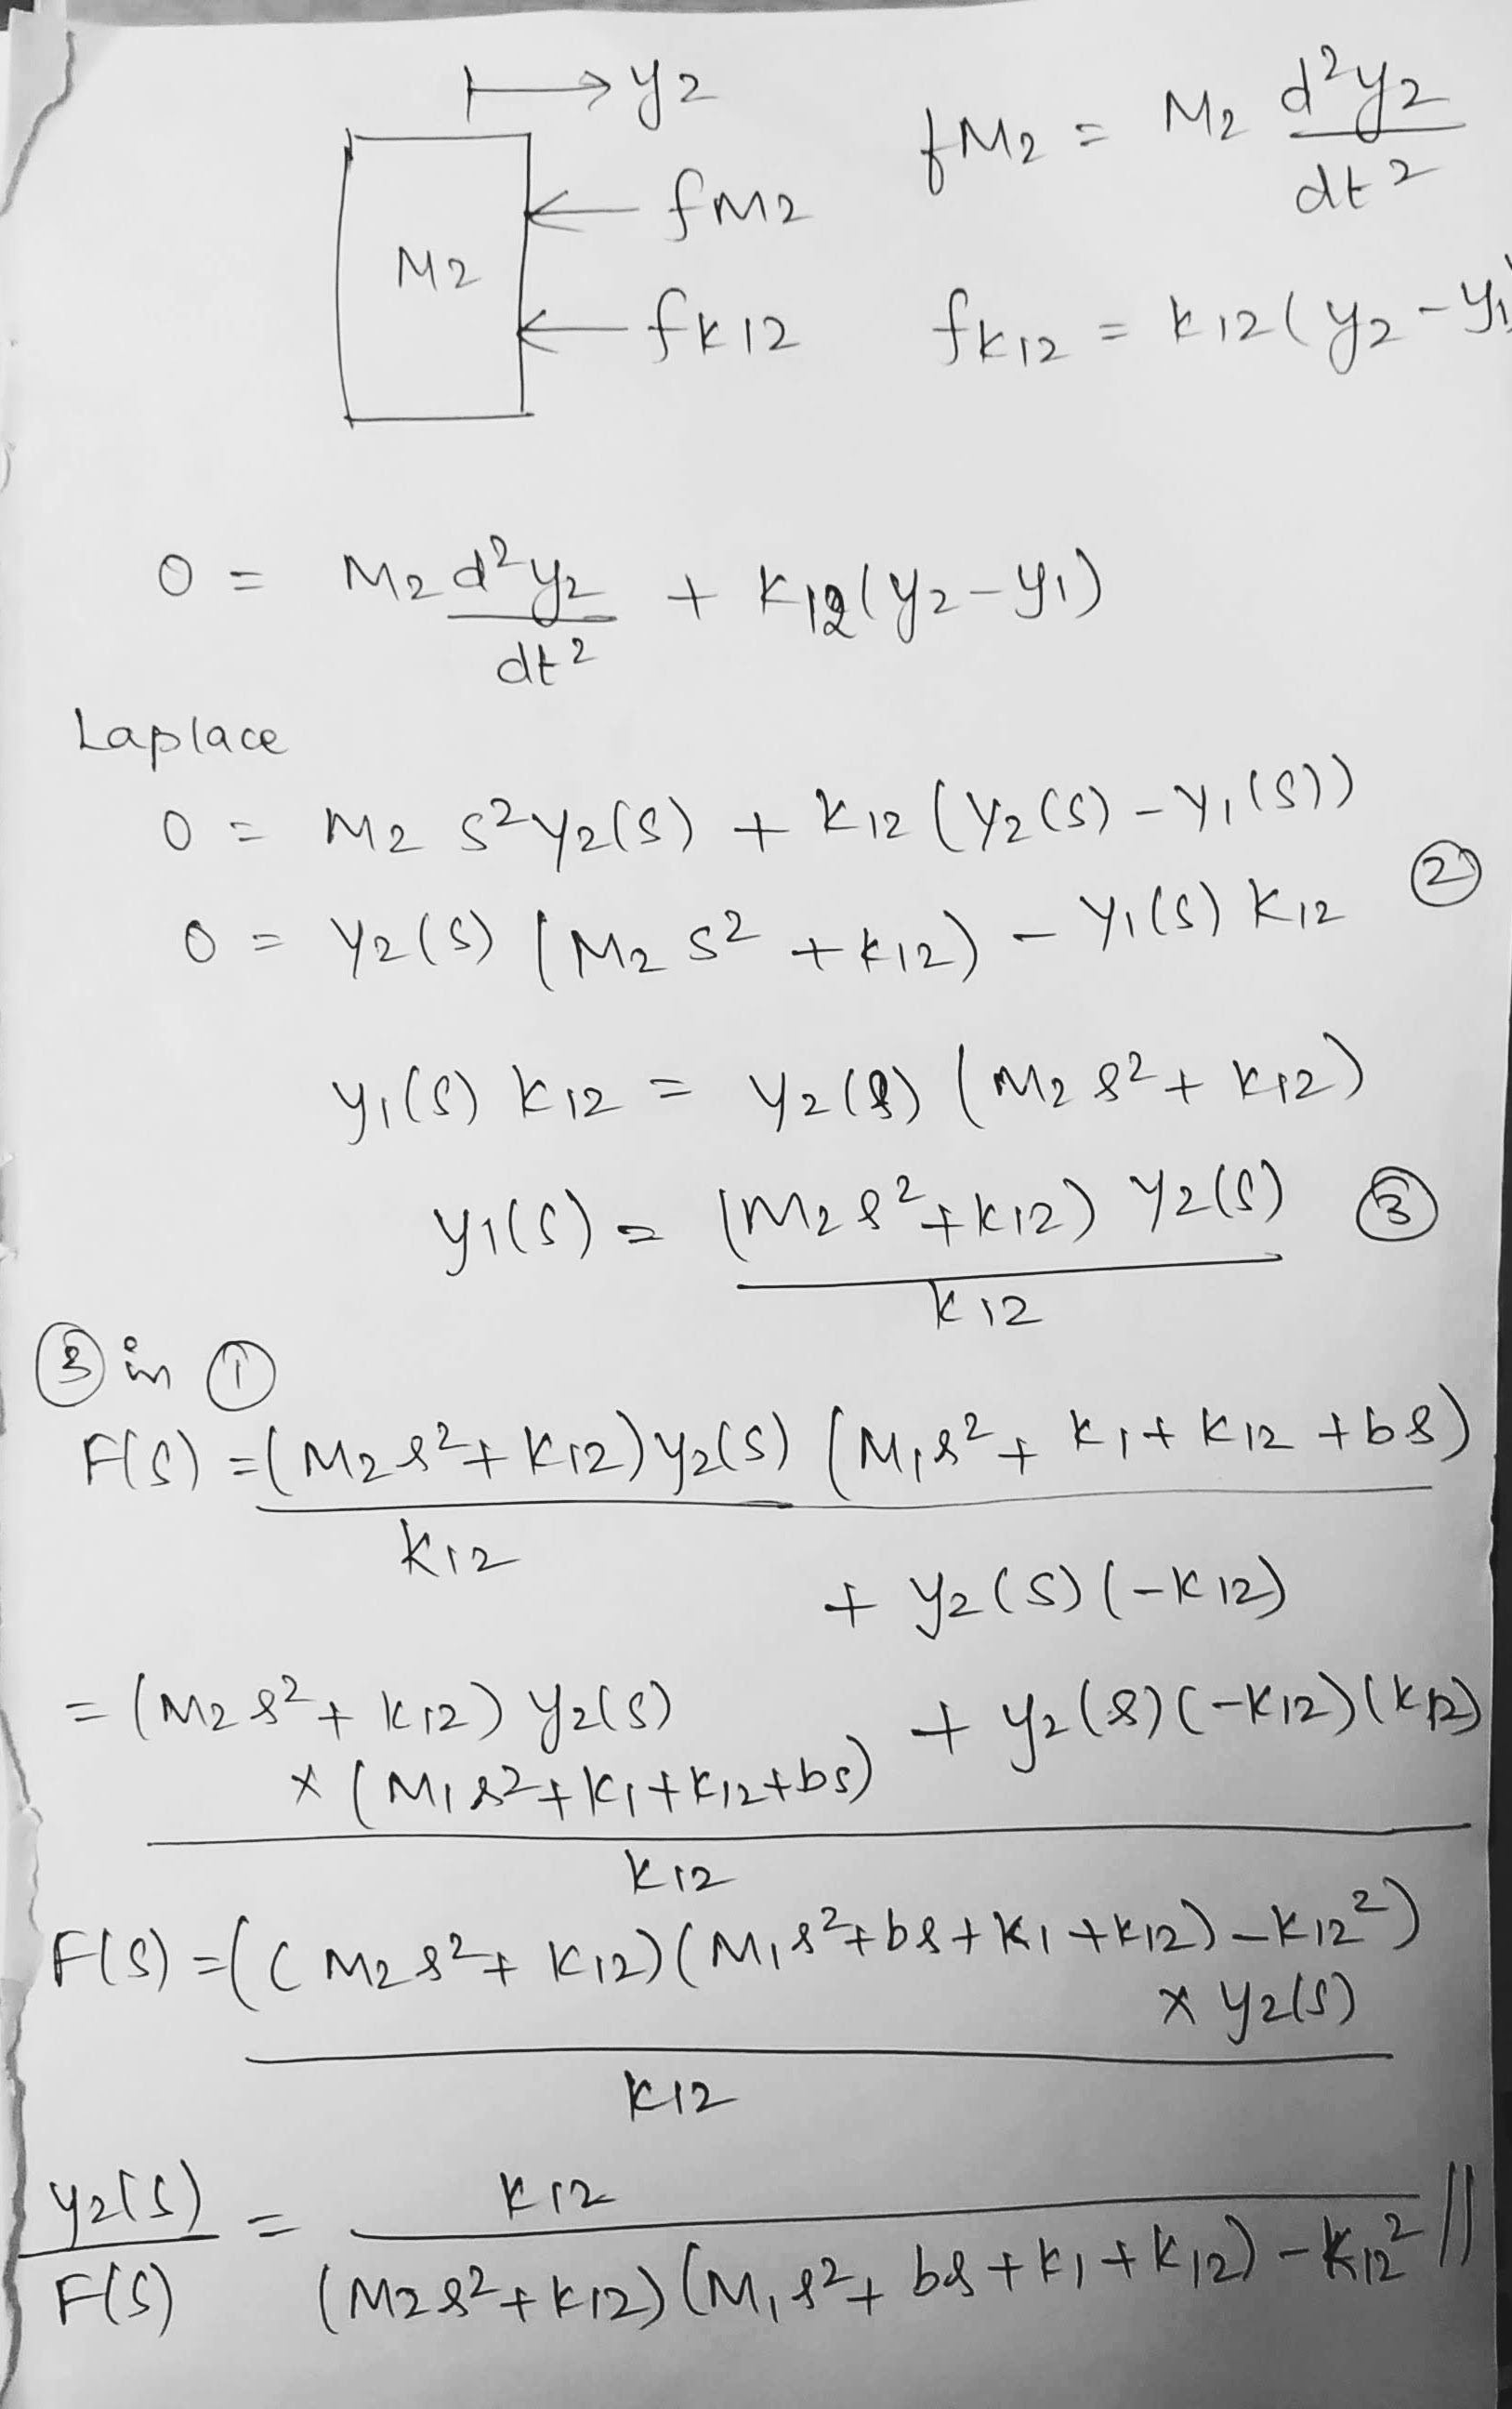 → y2
fM2 = M2 d²y2/dt²
← fM2
M2
← fK12
fK12 = K12(y2-y1)
0 = M2 d²y2/dt² + K12(y2-y1)
Laplace
0 = M2 s²Y2(s) + K12 (Y2(s) - Y1(s))
0 = Y2(s) (M2 s² + K12) - Y1(s) K12 ②
Y1(s) K12 = Y2(s) (M2 s² + K12)
Y1(s) = (M2 s² + K12) Y2(s) ③
K12
③ in ①
F(s) = (M2 s² + K12) Y2(s) (M1 s² + K1 + K12 + bs)
K12
+ Y2(s) (-K12)
= (M2 s² + K12) Y2(s) + Y2(s) (-K12) (K12)
× (M1 s² + K1 + K12 + bs)
K12
F(s) = ((M2 s² + K12) (M1 s² + bs + K1 + K12) - K12²)
× Y2(s)
K12
Y2(s)/F(s) = K12
(M2 s² + K12) (M1 s² + bs + K1 + K12) - K12² //